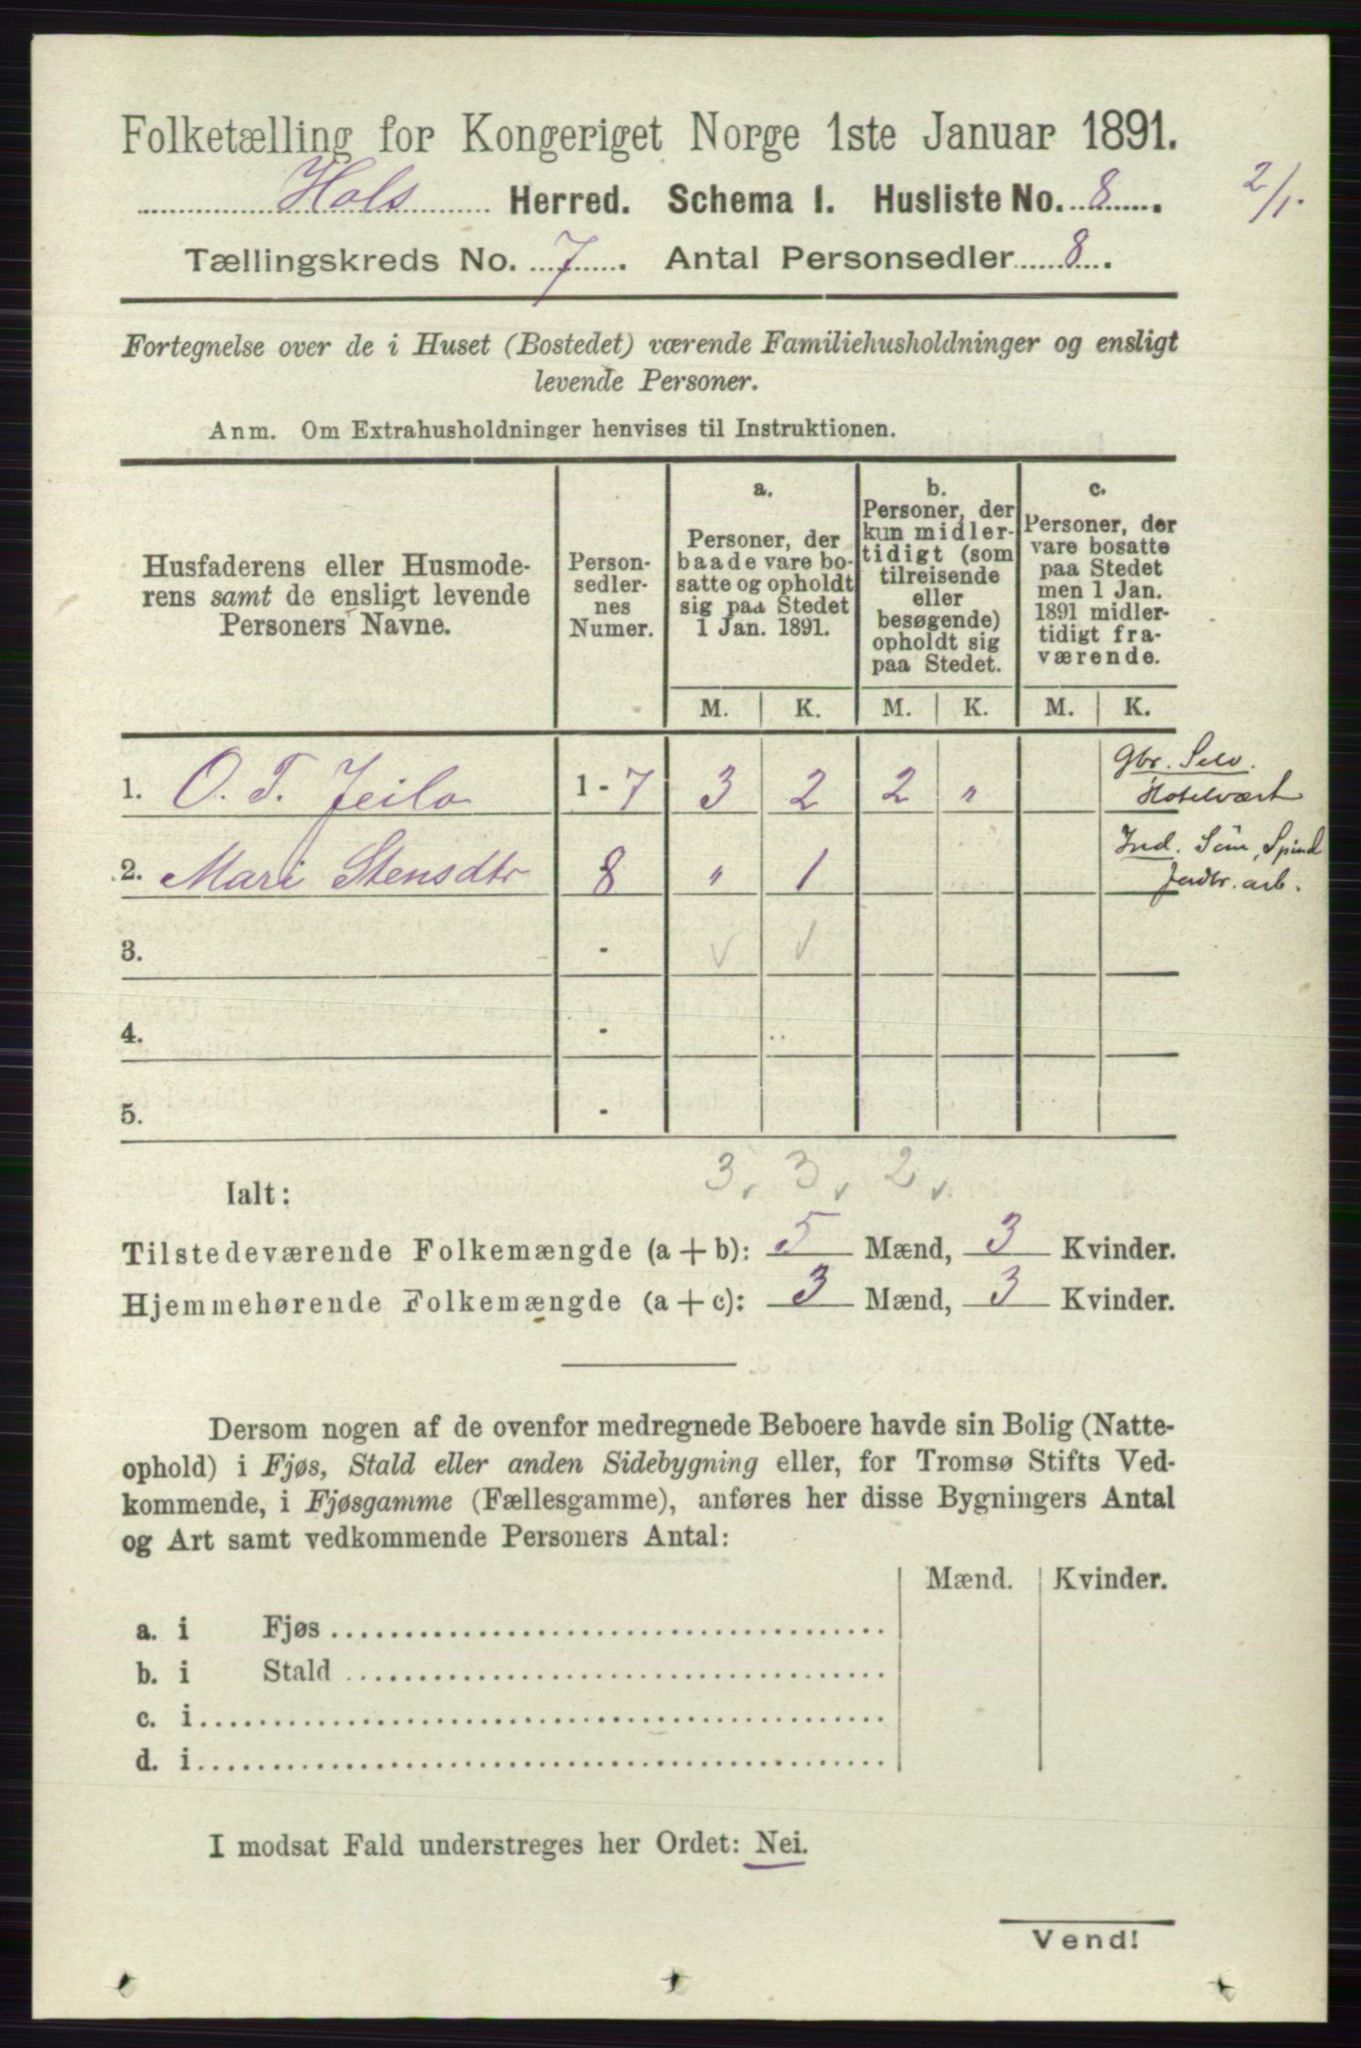 Folketælling for Kongeriget Norge 1ste Januar 1891.
Hols Herred. Schema 1. Husliste No. 8. 2/1.
Tællingskreds No. 7. Antal Personsedler 8.
Fortegnelse over de i Huset (Bostedet) værende Familiehusholdninger og ensligt
levende Personer.
Anm. Om Extrahusholdninger henvises til Instruktionen.
Husfaderens eller Husmode-
rens samt de ensligt levende
Personers Navne.
Person-
sedler-
nes
Numer.
a.
Personer, der
baade vare bo-
satte og opholdt
sig paa Stedet
1 Jan. 1891.
b.
Personer, der
kun midler-
tidigt (som
tilreisende
eller
besøgende)
opholdt sig
paa Stedet.
c.
Personer, der
vare bosatte
paa Stedet
men 1 Jan.
1891 midler-
tidigt fra-
værende.
M. K. M. K. M. K.
1. O. T. Jeilo 1 - 7 3 2 2 " Gbr. Selv.
Hotelvært
2. Mari Stensdtr 8 " 1 Ind. Søm, Spind
Jordbr. arb.
3. - v v
4. -
5. -
Ialt: 3 v 3 v 2 v
Tilstedeværende Folkemængde (a + b): 5 Mænd, 3 Kvinder.
Hjemmehørende Folkemængde (a + c): 3 Mænd, 3 Kvinder.
Dersom nogen af de ovenfor medregnede Beboere havde sin Bolig (Natte-
ophold) i Fjøs, Stald eller anden Sidebygning eller, for Tromsø Stifts Ved-
kommende, i Fjøsgamme (Fællesgamme), anføres her disse Bygningers Antal
og Art samt vedkommende Personers Antal:
Mænd. Kvinder.
a. i Fjøs
b. i Stald
c. i
d. i
I modsat Fald understreges her Ordet: Nei.
Vend!